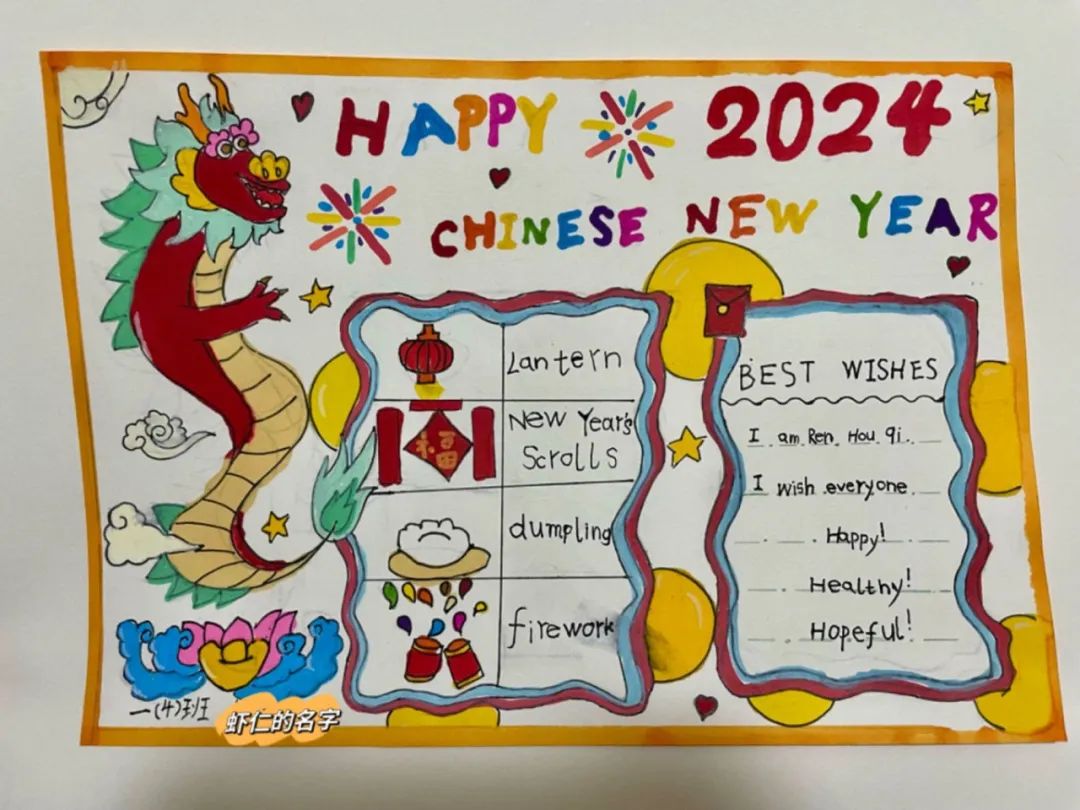 HAPPY 2024
CHINESE NEW YEAR
Lantern
New Year's
Scrolls
福
dumpling
firework
BEST WISHES
I am Ren Hou qi.
I wish everyone
Happy!
Healthy!
Hopeful!
一(4)班
虾仁的名字